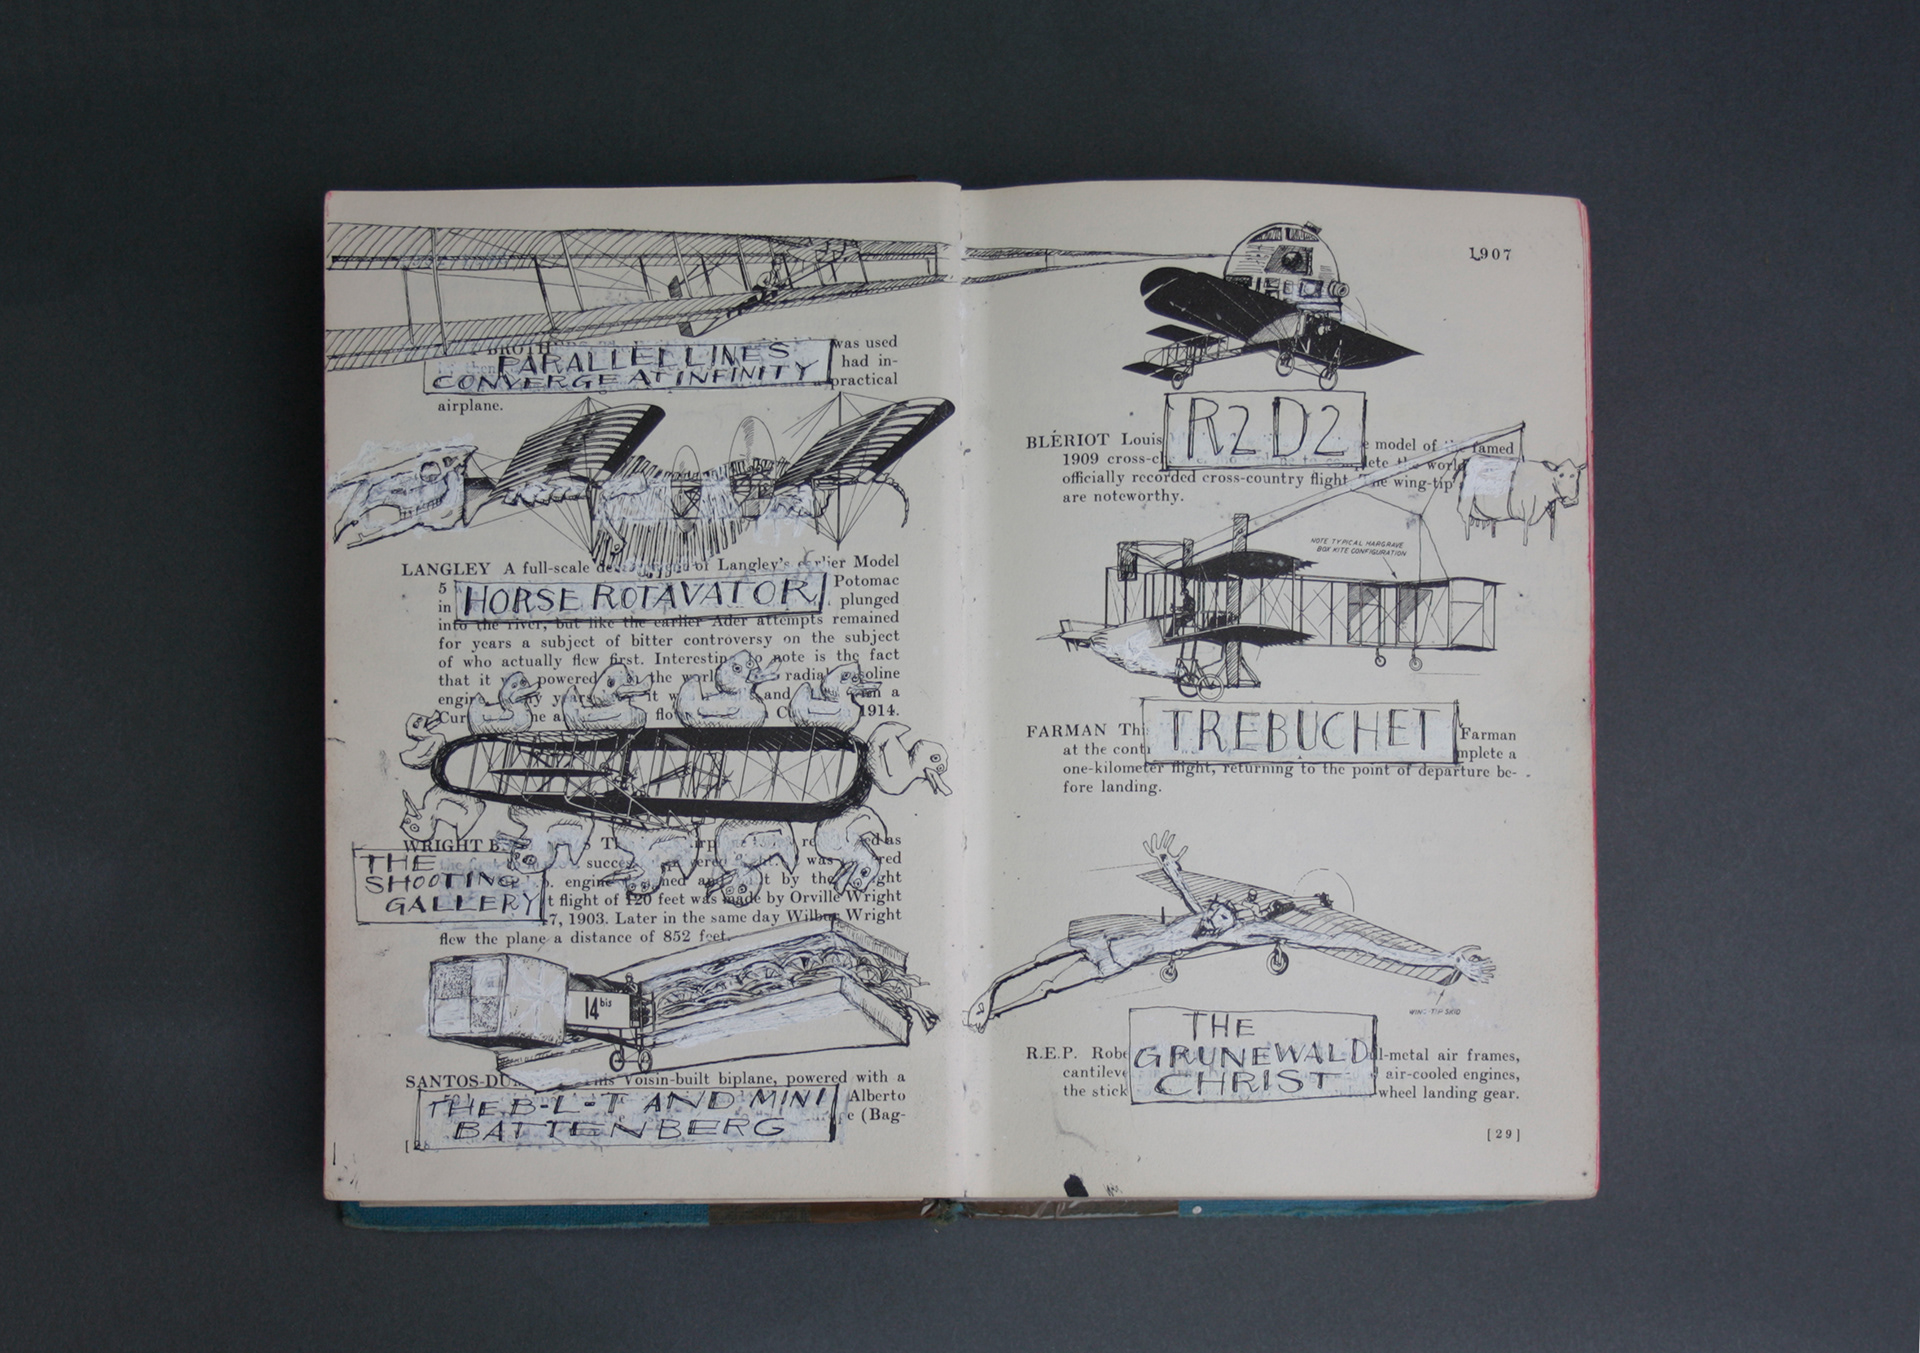 BROTH
was used
had in-
practical
PARALLEL LINES
CONVERGE AT INFINITY
airplane.
LANGLEY A full-scale of Langley's earlier Model
5 Potomac
in plunged
HORSE ROTAVATOR
into the river, but like the earlier Ader attempts remained
for years a subject of bitter controversy on the subject
of who actually flew first. Interesting to note is the fact
that it powered the world radial
engine years it and in a
flo 1914.
WRIGHT B
THE
SHOOTING
GALLERY
succes
engine by the
t flight of 120 feet was made by Orville Wright
7, 1903. Later in the same day Wilbur Wright
flew the plane a distance of 852 feet.
14 bis
SANTOS-DU this Voisin-built biplane, powered with a
Alberto
(Bag-
THE B-L-T AND MINI
BATTENBERG
1907
R2D2
BLÉRIOT Louis model of the famed
1909 cross-c to complete the world
officially recorded cross-country flight. The wing-tip
are noteworthy.
NOTE TYPICAL HARGRAVE
BOX KITE CONFIGURATION
TREBUCHET
FARMAN Thi Farman
at the cont mplete a
one-kilometer flight, returning to the point of departure be-
fore landing.
WING-TIP SKID
THE
GRUNEWALD
CHRIST
R.E.P. Robe l-metal air frames,
cantileve air-cooled engines,
the stick wheel landing gear.
[29]